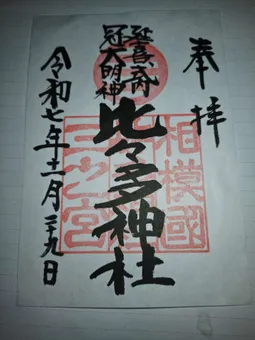 奉拝
相模國
延喜式内
冠大明神
比々多神社
三之宮
令和七年十一月二十九日